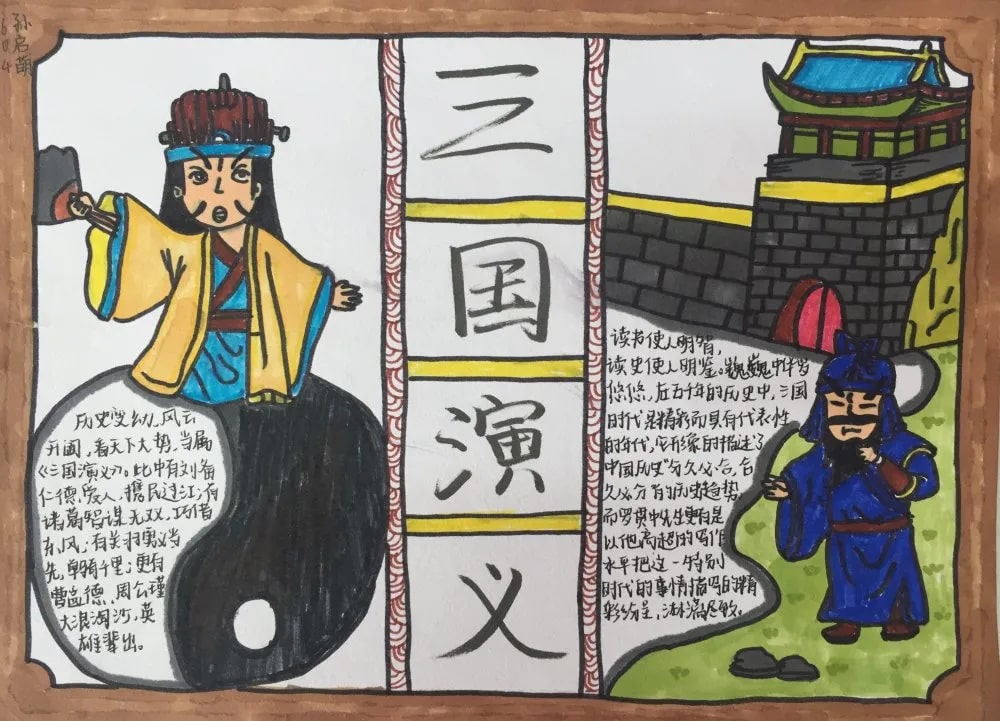 孙启萌
604
三国演义
历史变幻,风云
开阖,看天下大势,当属
《三国演义》。此中有刘备
仁德爱人,携民过江;有
诸葛智谋无双,巧借
东风;有关羽勇义当
先,单骑千里;更有
曹孟德、周公瑾
大浪淘沙,英
雄辈出。
读书使人明智,
读史使人明鉴。巍巍中华
悠悠,在五千年的历史中,三国
时代是精彩而具有代表性
的年代,它形象的描述了
中国历史“分久必合,合
久必分”的历史趋势,
而罗贯中先生更是
以他高超的写作
水平把这一特别
时代的事情描写的精
彩纷呈,淋漓尽致。